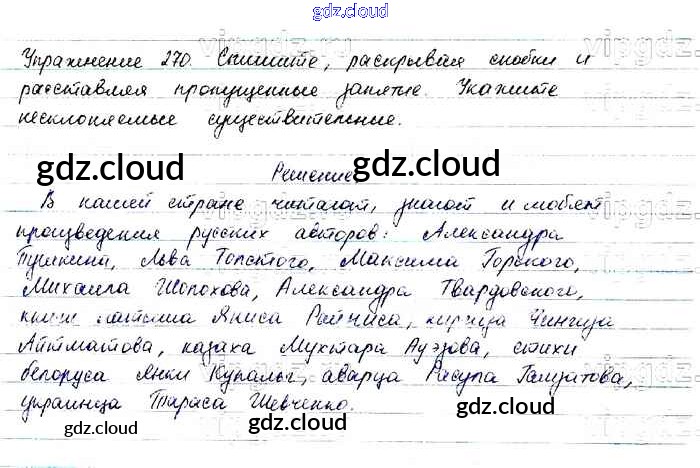 gdz.cloud
vipgdz.ru
Упражнение 270. Спишите, раскрывая скобки и
расставляя пропущенные запятые. Укажите
несклоняемые существительные.
gdz.cloud gdz.cloud gdz.cloud
Решение
В нашей стране читают, знают и любят
произведения русских авторов: Александра
Пушкина, Льва Толстого, Максима Горького,
Михаила Шолохова, Александра Твардовского,
книги латыша Яниса Райниса, киргиза Чингиза
Айтматова, казаха Мухтара Ауэзова, стихи
белоруса Янки Купалы, аварца Расула Гамзатова,
украинца Тараса Шевченко.
gdz.cloud gdz.cloud gdz.cloud